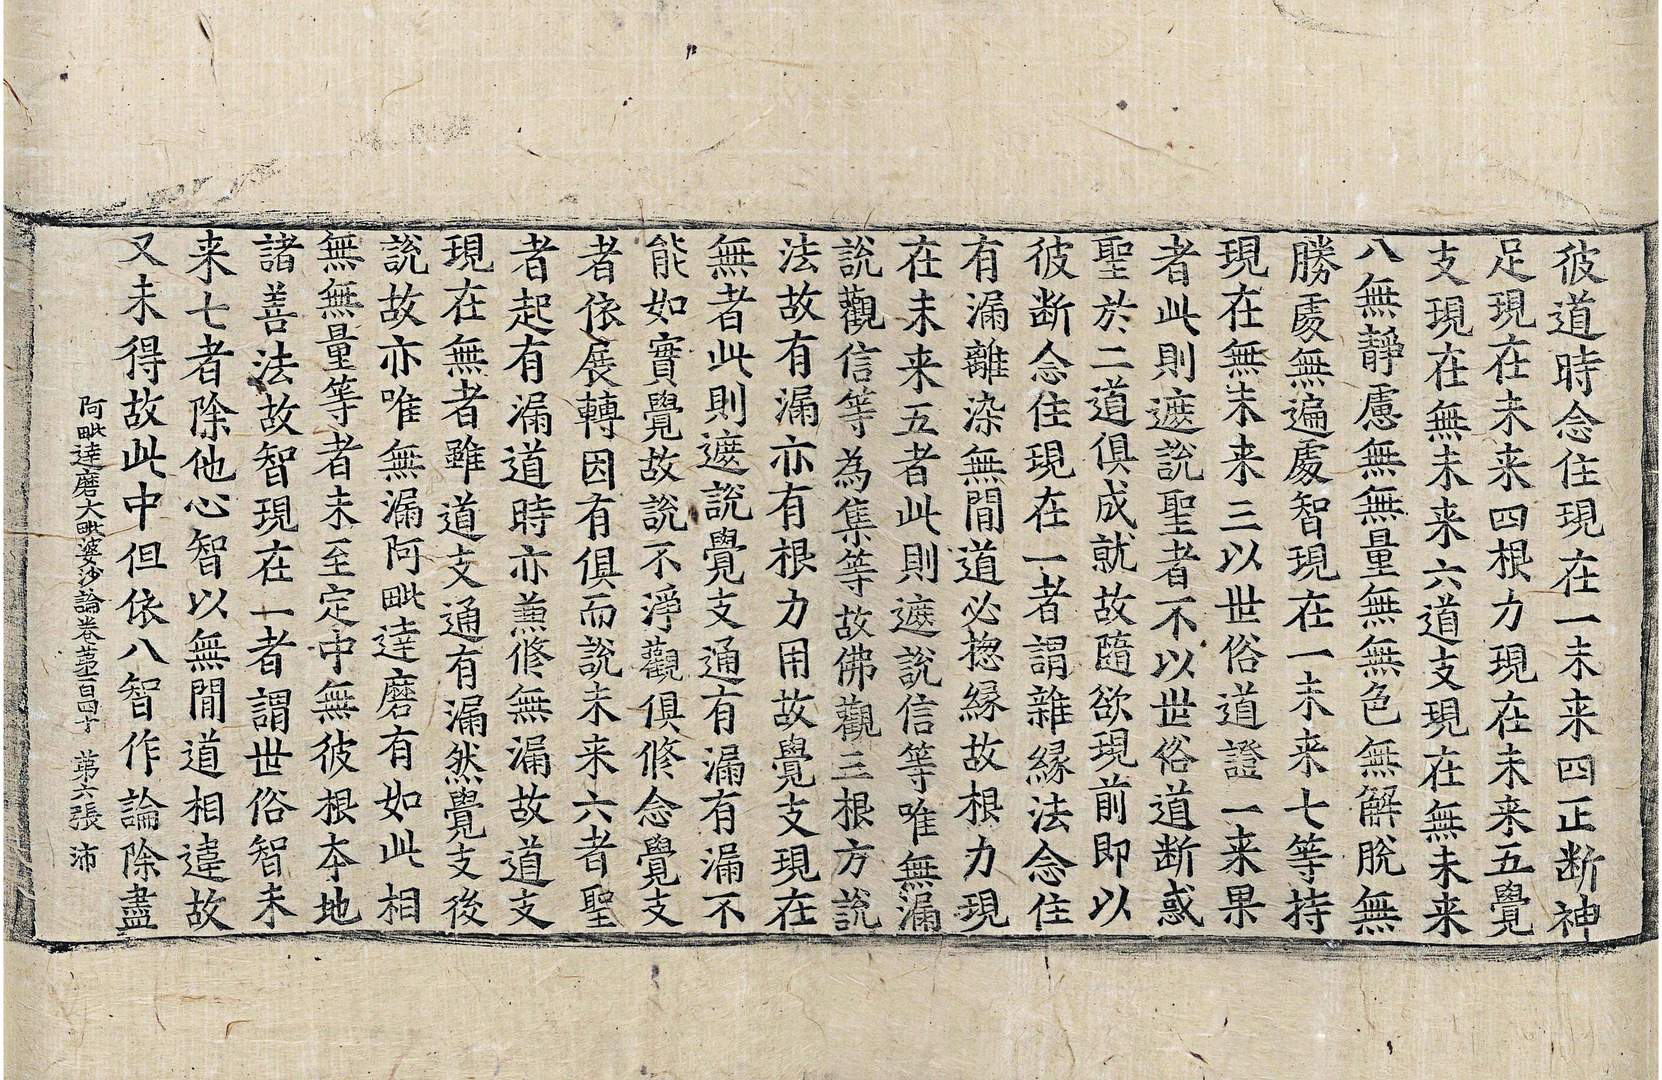 彼道時念住現在一未来四正断神
足現在未来四根力現在未来五覺
支現在無未来六道支現在無未来
八無靜慮無無量無無色無解脫無
勝處無遍處智現在一未来七等持
現在無未来三以世俗道證一来果
者此則遮說聖者不以世俗道断惑
聖於二道俱成就故隨欲現前即以
彼断念住現在一者謂雜縁法念住
有漏離染無間道必揔縁故根力現
在未来五者此則遮說信等唯無漏
說觀信等為集等故佛觀三根方說
法故有漏亦有根力用故覺支現在
無者此則遮說覺支通有漏有漏不
能如實覺故說不淨觀俱修念覺支
者依展轉因有俱而說未来六者聖
者起有漏道時亦兼修無漏故道支
現在無者雖道支通有漏然覺支後
說故亦唯無漏阿毗達磨有如此相
無無量等者未至定中無彼根本地
諸善法故智現在一者謂世俗智未
来七者除他心智以無間道相違故
又未得故此中但依八智作論除盡
阿毗達磨大毗婆沙論卷苐一百四十 苐六張 沛